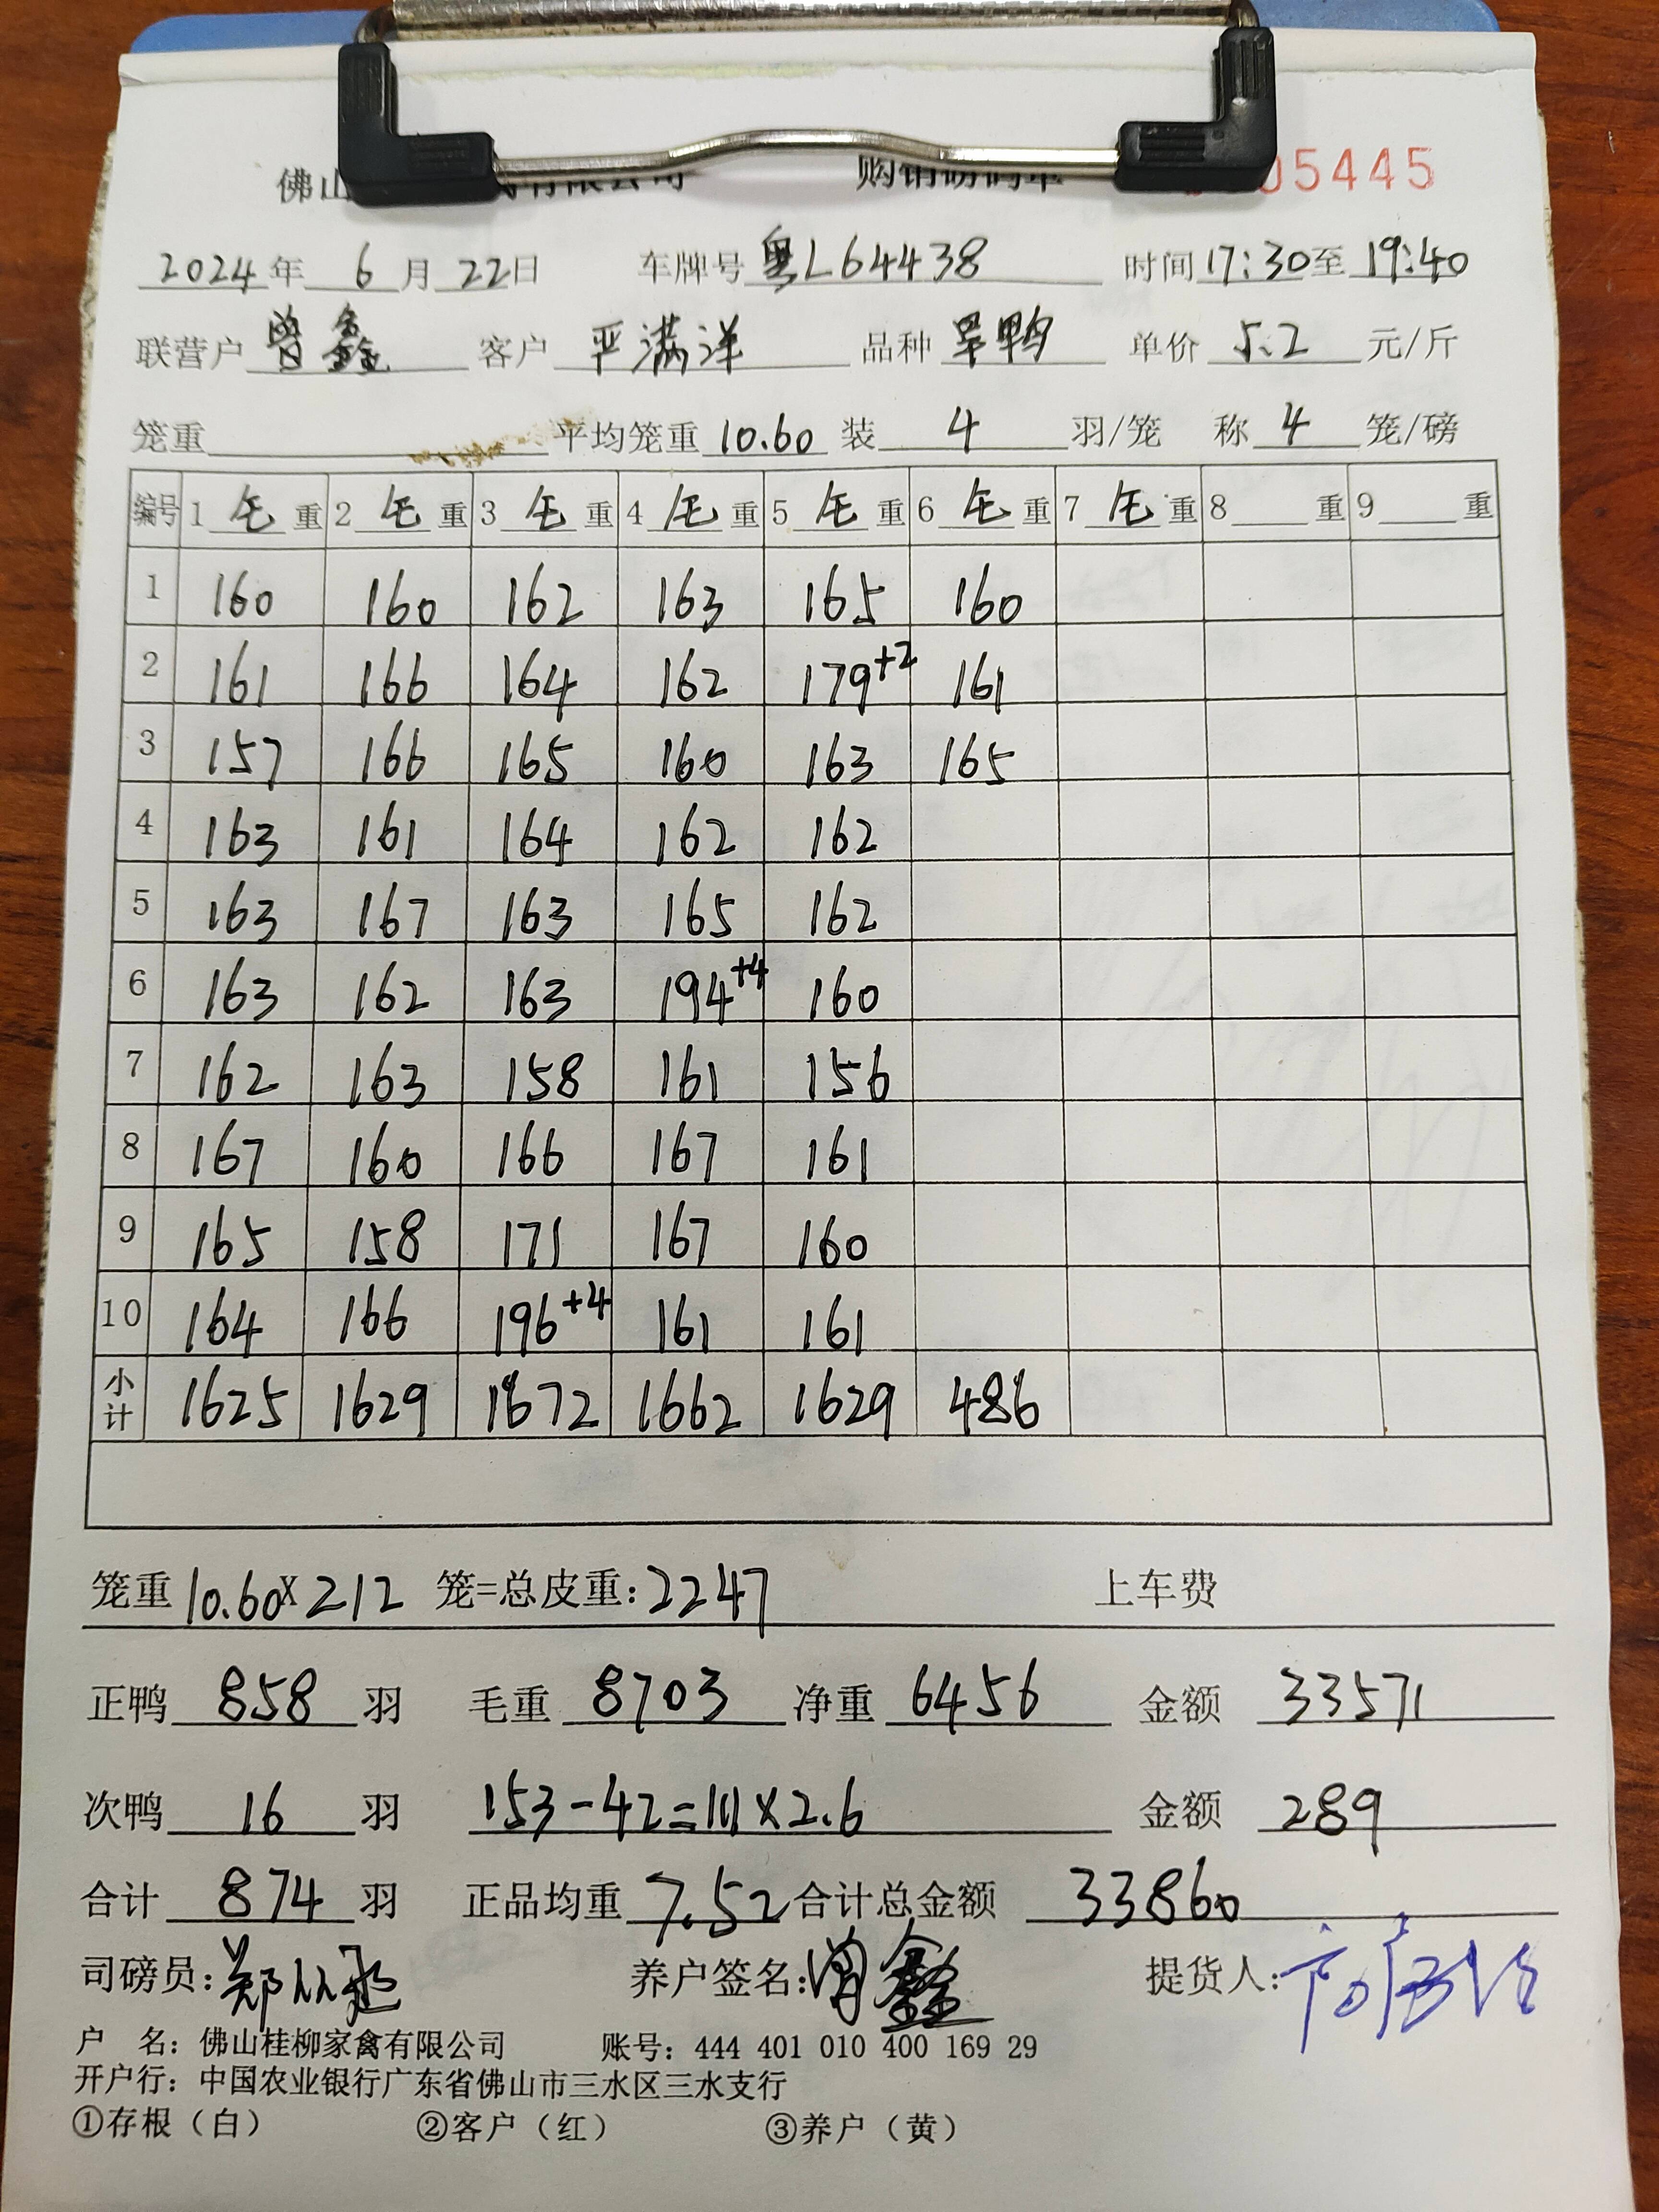 佛山 有限公司 购销磅码单 05445
2024年 6月22日 车牌号 粤L64438 时间17:30至19:40
联营户 曾鑫 客户 严满洋 品种 旱鸭 单价 5.2 元/斤
笼重 平均笼重 10.60 装 4 羽/笼 称 4 笼/磅
编号 1 毛 重 2 毛 重 3 毛 重 4 毛 重 5 毛 重 6 毛 重 7 毛 重 8 重 9 重
1 160 160 162 163 165 160
2 161 166 164 162 179+2 161
3 157 166 165 160 163 165
4 163 161 164 162 162
5 163 167 163 165 162
6 163 162 163 194+4 160
7 162 163 158 161 156
8 167 160 166 167 161
9 165 158 171 167 160
10 164 166 196+4 161 161
小计 1625 1629 1672 1662 1629 486
笼重 10.60X212 笼=总皮重:2247 上车费
正鸭 858 羽 毛重 8703 净重 6456 金额 33571
次鸭 16 羽 153-42=111×2.6 金额 289
合计 874 羽 正品均重 7.52 合计总金额 33860
司磅员:郑 养户签名:曾鑫 提货人:
户 名: 佛山桂柳家禽有限公司 账号: 444 401 010 400 169 29
开户行: 中国农业银行广东省佛山市三水区三水支行
①存根（白） ②客户（红） ③养户（黄）